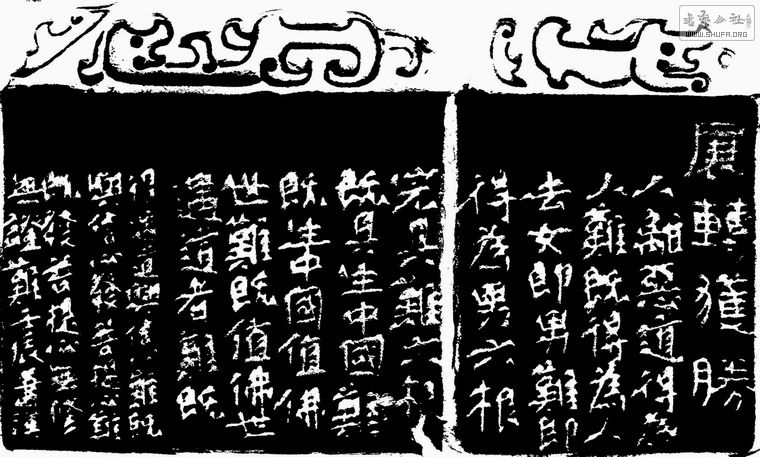 展轉獲勝
人離惡道得為
人難既得為人
去女即男難即
得為男六根
完具難六根
既具生中國難
既生中國值佛
世難既值佛世
遇道者難既
得遇道興信心難既
興信心發菩提心難
既發菩提心無修
無證難壬辰
公社
WWW.SHUFA.ORG